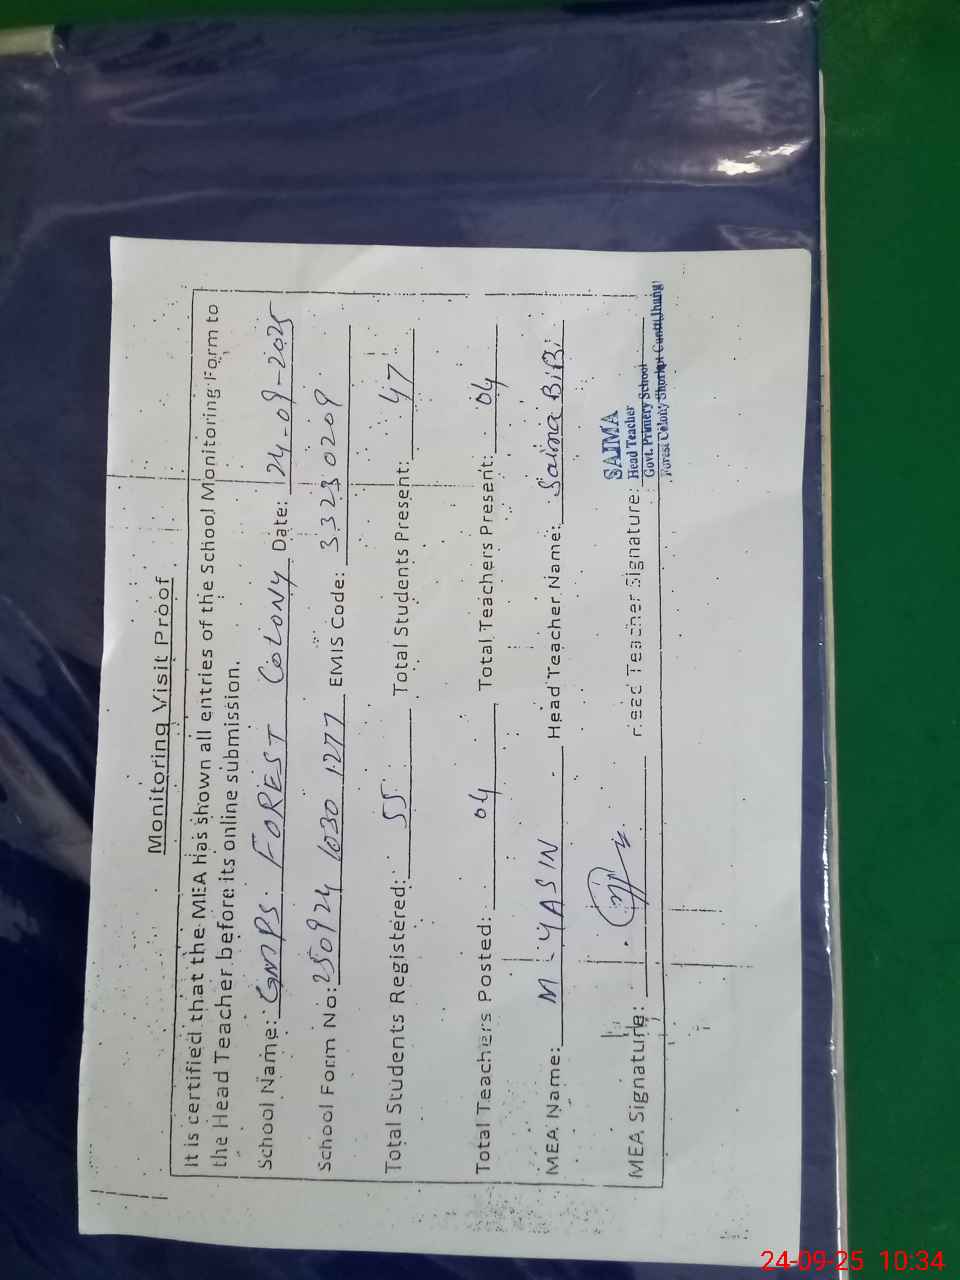 Monitoring Visit Proof
It is certified that the MEA has shown all entries of the School Monitoring Form to
the Head Teacher before its online submission.
School Name: GMPS FOREST COLONY Date: 24-09-2025
School Form No: 250924 1030 1277 EMIS Code: 33230209
Total Students Registered: 55 Total Students Present: 47
Total Teachers Posted: 04 Total Teachers Present: 04
MEA Name: M. YASIN Head Teacher Name: Saima BiBi
MEA Signature: Head Teacher Signature:
SAIMA
Head Teacher
Govt. Primery School
Forest Colony Shorkot Cantt(Jhang)
24-09-25 10:34